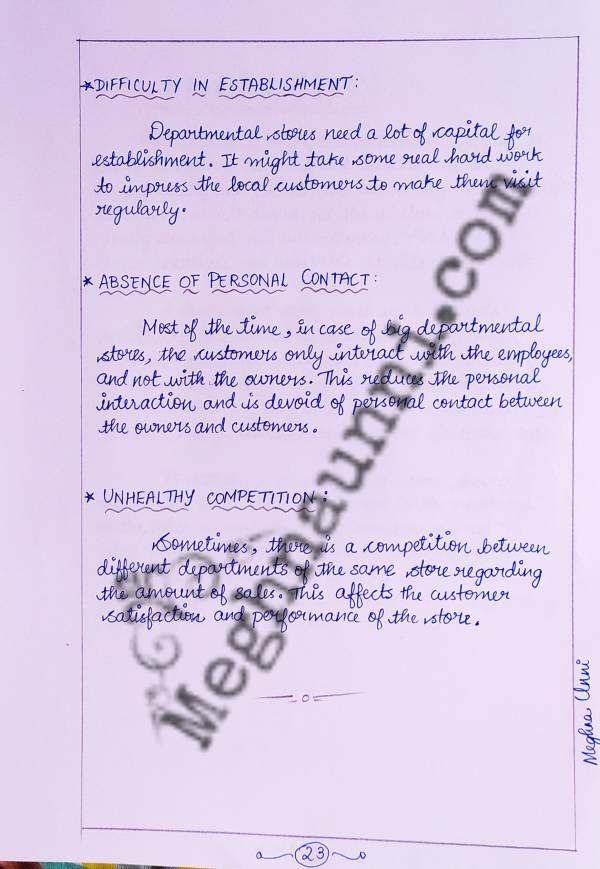 * DIFFICULTY IN ESTABLISHMENT:
Departmental stores need a lot of capital for
establishment. It might take some real hard work
to impress the local customers to make them visit
regularly.
* ABSENCE OF PERSONAL CONTACT:
Most of the time, in case of big departmental
stores, the customers only interact with the employees,
and not with the owners. This reduces the personal
interaction and is devoid of personal contact between
the owners and customers.
* UNHEALTHY COMPETITION:
Sometimes, there is a competition between
different departments of the same store regarding
the amount of sales. This affects the customer
satisfaction and performance of the store.
Meghnaunni.com
Meghna Unni
23